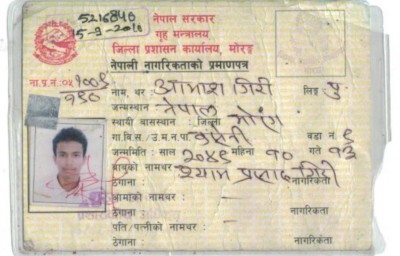 5216846
नेपाल सरकार
गृह मन्त्रालय
जिल्ला प्रशासन कार्यालय, मोरङ्ग
नेपाली नागरिकताको प्रमाणपत्र
ना.प्र.नं.
नाम, थर: गिरी लिङ्ग पु.
जन्मस्थान: नेपाल
स्थायी बासस्थान: जिल्ला मोरंग
गा.वि.स./उ.म.न.पा. वडा नं. ९
जन्ममिति: साल २०४६ महिना १० गते १३
बाबुको नामथर: श्याम प्रसाद गिरी
ठेगाना: नागरिकता
आमाको नामथर:
ठेगाना: नागरिकता
पति/पत्नीको नामथर:
ठेगाना: नागरिकता